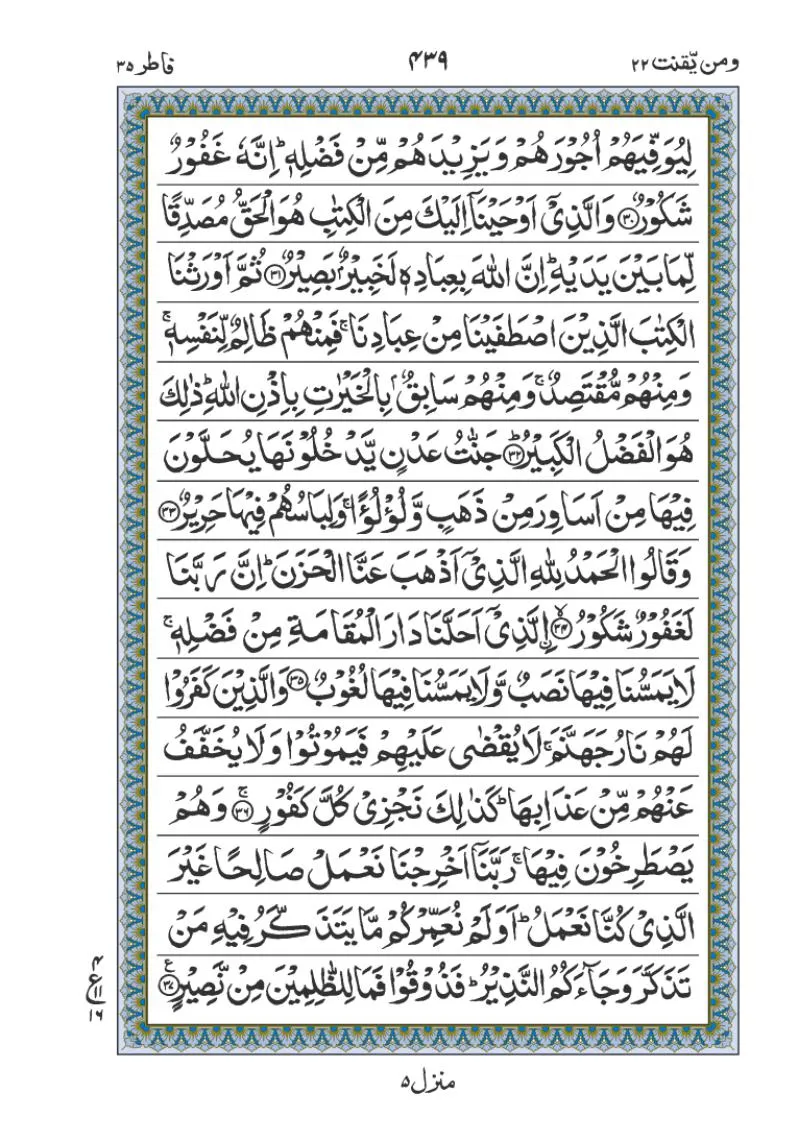 ومن يّقنت ۲۲
۴۳۹
فاطر ۳۵
لِيُوَفِّيَهُمْ اُجُوْرَهُمْ وَيَزِيْدَهُمْ مِّنْ فَضْلِهٖ ؕ اِنَّهٗ غَفُوْرٌ
شَكُوْرٌ ﴿۳۰﴾ وَالَّذِيْۤ اَوْحَيْنَاۤ اِلَيْكَ مِنَ الْكِتٰبِ هُوَ الْحَقُّ مُصَدِّقًا
لِّمَا بَيْنَ يَدَيْهِ ؕ اِنَّ اللّٰهَ بِعِبَادِهٖ لَخَبِيْرٌۢ بَصِيْرٌ ﴿۳۱﴾ ثُمَّ اَوْرَثْنَا
الْكِتٰبَ الَّذِيْنَ اصْطَفَيْنَا مِنْ عِبَادِنَا ۚ فَمِنْهُمْ ظَالِمٌ لِّنَفْسِهٖ ۚ
وَمِنْهُمْ مُّقْتَصِدٌ ۚ وَمِنْهُمْ سَابِقٌۢ بِالْخَيْرٰتِ بِاِذْنِ اللّٰهِ ؕ ذٰلِكَ
هُوَ الْفَضْلُ الْكَبِيْرُ ؕ﴿۳۲﴾ جَنّٰتُ عَدْنٍ يَّدْخُلُوْنَهَا يُحَلَّوْنَ
فِيْهَا مِنْ اَسَاوِرَ مِنْ ذَهَبٍ وَّلُؤْلُؤًا ۚ وَلِبَاسُهُمْ فِيْهَا حَرِيْرٌ ﴿۳۳﴾
وَقَالُوا الْحَمْدُ لِلّٰهِ الَّذِيْۤ اَذْهَبَ عَنَّا الْحَزَنَ ؕ اِنَّ رَبَّنَا
لَغَفُوْرٌ شَكُوْرُ ۙ﴿۳۴﴾ اِۨلَّذِيْۤ اَحَلَّنَا دَارَ الْمُقَامَةِ مِنْ فَضْلِهٖ ۚ
لَا يَمَسُّنَا فِيْهَا نَصَبٌ وَّلَا يَمَسُّنَا فِيْهَا لُغُوْبٌ ﴿۳۵﴾ وَالَّذِيْنَ كَفَرُوْا
لَهُمْ نَارُ جَهَنَّمَ ۚ لَا يُقْضٰى عَلَيْهِمْ فَيَمُوْتُوْا وَلَا يُخَفَّفُ
عَنْهُمْ مِّنْ عَذَابِهَا ؕ كَذٰلِكَ نَجْزِيْ كُلَّ كَفُوْرٍ ۚ﴿۳۶﴾ وَهُمْ
يَصْطَرِخُوْنَ فِيْهَا ۚ رَبَّنَاۤ اَخْرِجْنَا نَعْمَلْ صَالِحًا غَيْرَ
الَّذِيْ كُنَّا نَعْمَلُ ؕ اَوَلَمْ نُعَمِّرْكُمْ مَّا يَتَذَكَّرُ فِيْهِ مَنْ
تَذَكَّرَ وَجَآءَكُمُ النَّذِيْرُ ؕ فَذُوْقُوْا فَمَا لِلظّٰلِمِيْنَ مِنْ نَّصِيْرٍ ﴿۳۷﴾ ع
۴
ع ۱۱
۱۶
منزل ۵